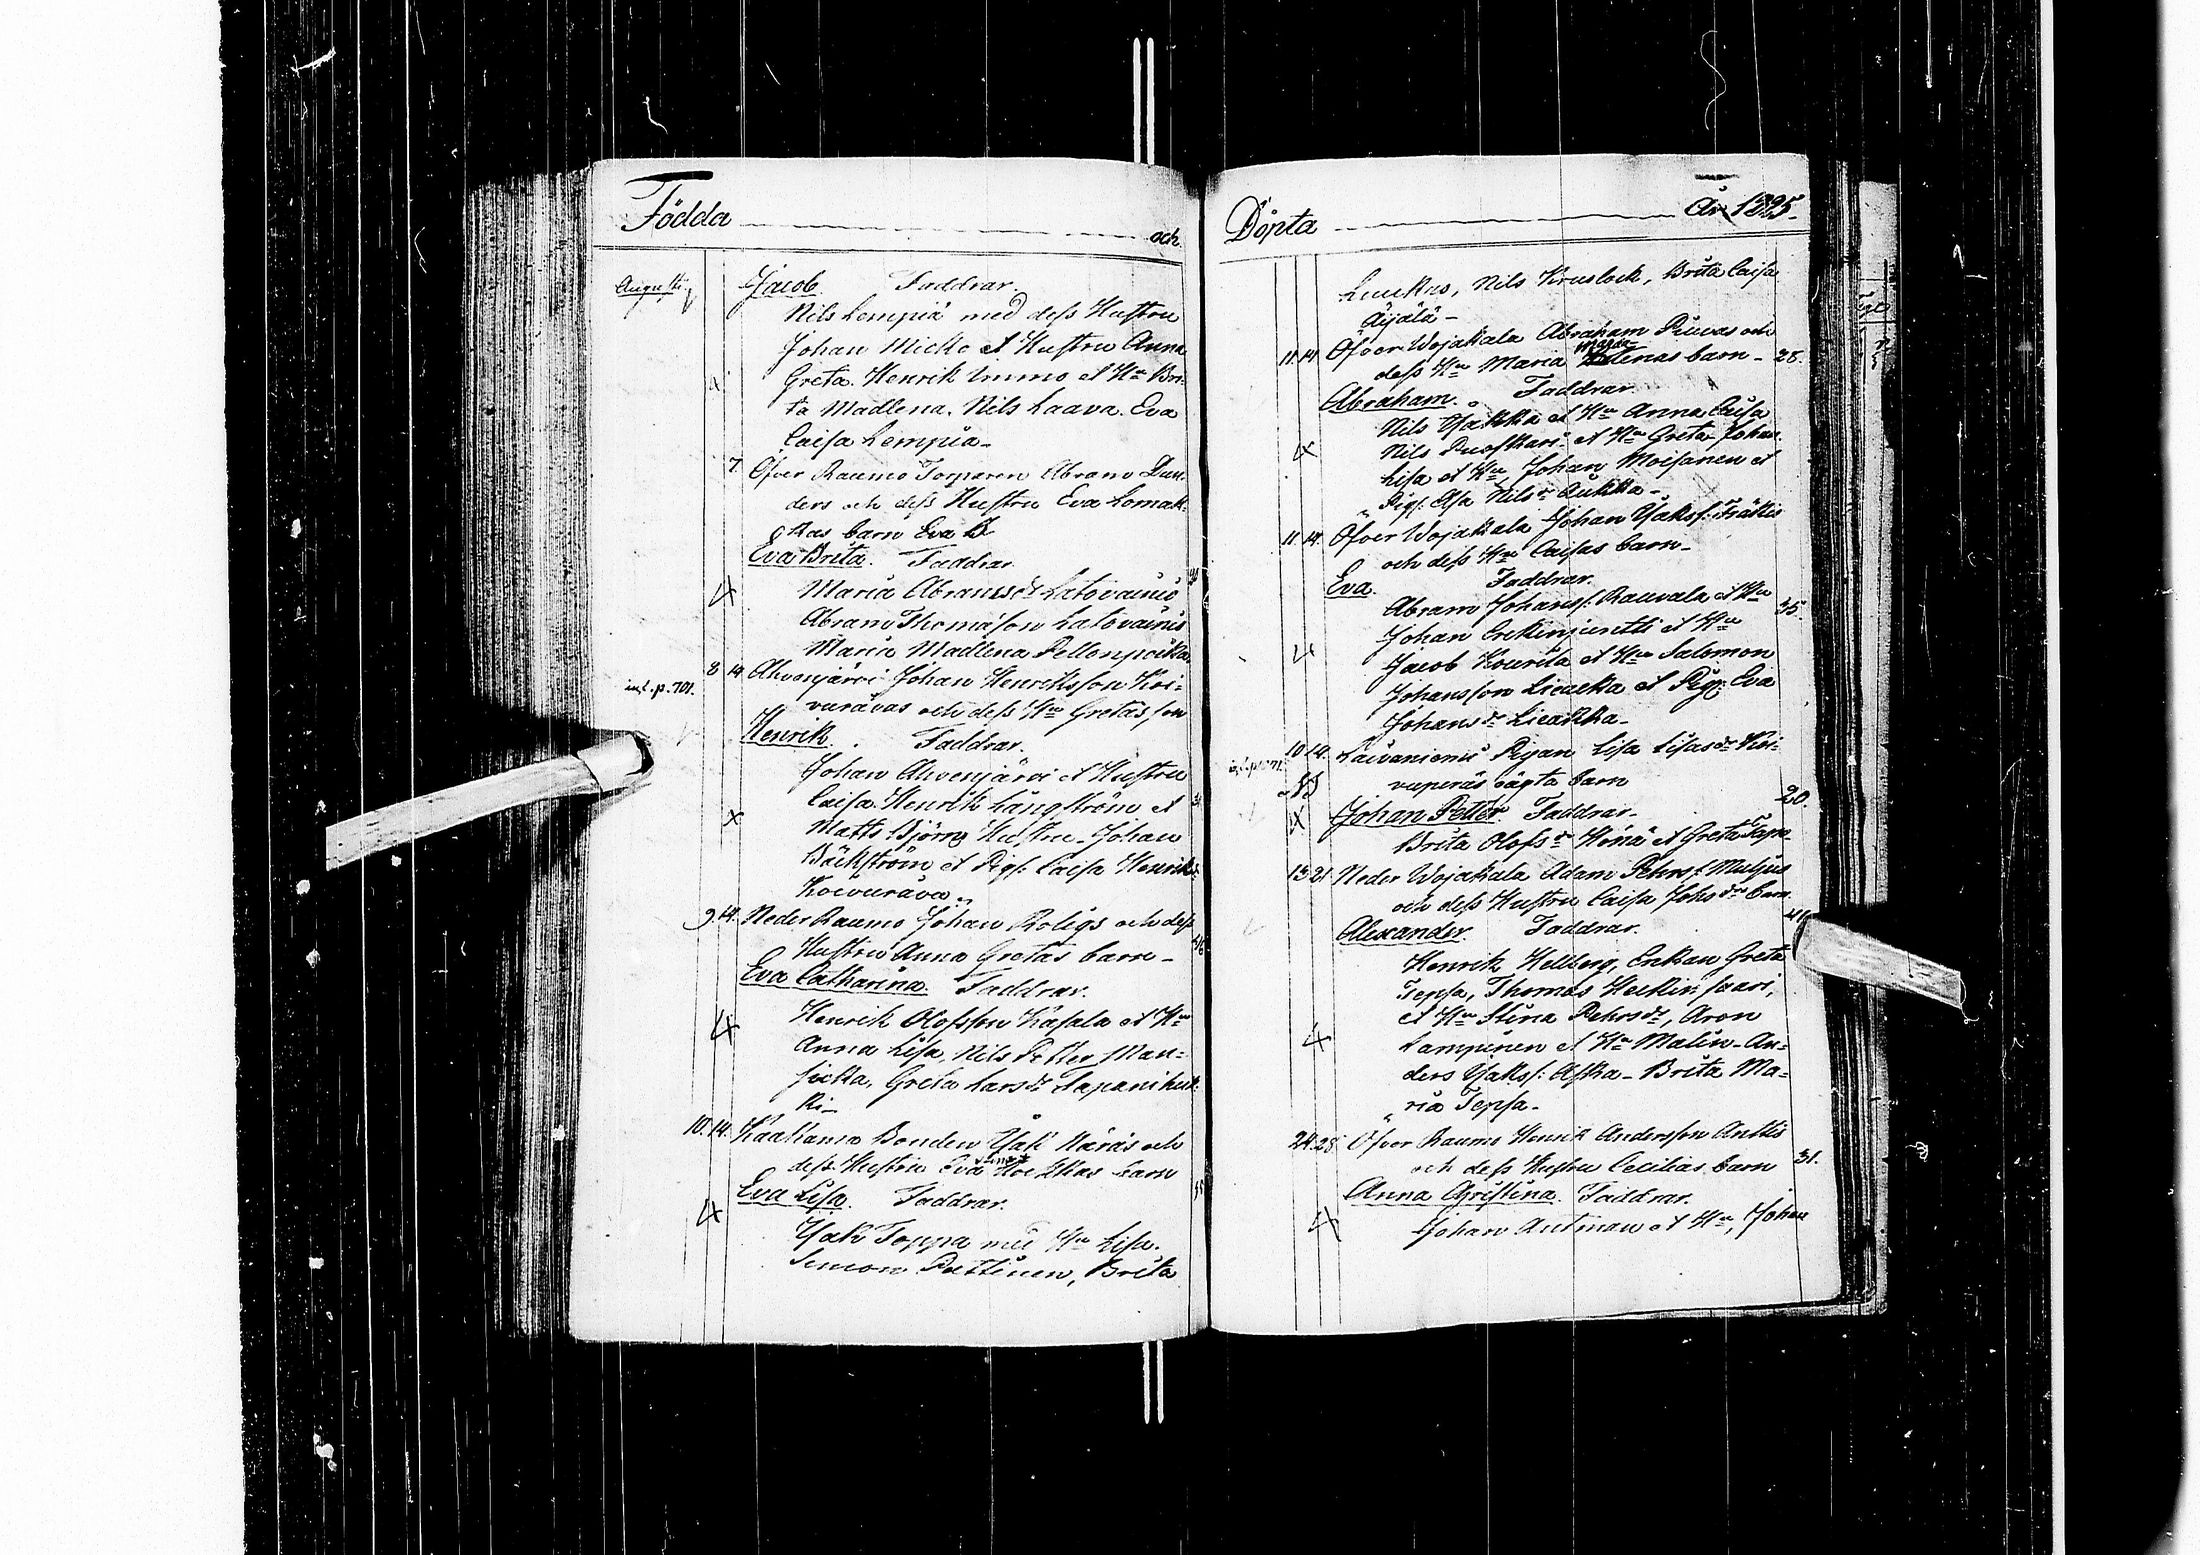 Födda och
Augusti
Jacob. Faddrar.
Nils Lempiä med dess Hustru
Johan Micko et Hustru Anna
Greta. Henrik Immo et Hu Bri-
ta Madlena. Nils Laava. Eva
Caisa Lempiä
7. Öfver Raumo Torparen Abram Dun-
ders och dess Hustru Eva Lomak-
kas barn Eva B
Eva Brita. Faddrar.
Maria Abramsdr Latovainio
Abram Thomasson Latovainio
Maria Madlena Pellonpoikka
inf. p. 701.
8 14 Ahvenjärvi Johan Henriksson Koi-
vuravas och dess Hu Gretas son
Henrik. Faddrar.
Johan Ahvenjärvi et Hustru
Caisa. Henrik Långström et
Matts Björn Hustru. Johan
Bäckström et Pig: Caisa Henriks
Koivurava.
9. 14. Neder Raumo Johan Roligs och dess
Hustru Anna Gretas barn
Eva Catharina. Faddrar.
Henrik Olofsson Kasala et Hu
Anna Lisa, Nils Petter Man-
sikka, Greta Larsdr Tapanihei-
ki
10. 14. Kaakamo Bonden Isak Näräs och
dess Hustru Eva barn
Eva Lisa. Faddrar.
Isak Toppa med Hu Lisa.
Simon Puttinen, Brita
Döpta År 1825.
Luukas, Nils Kruslock, Brita Caisa
Äijälä
11. 14 Öfver Wojakala Abraham Piuvas och
dess Hu Maria Magdalenas barn 28.
Abraham. Faddrar.
Nils Jakka et Hu Anna Caisa
Nils Ruoskari et Hu Greta Johan
Lisa et Hu, Johan Moisanen et
Pig: Asa Nilsdr Aukka
11. 14. Öfver Wojakala Johan Isakss: Frätis
och dess Hu Caisas barn
Eva. Faddrar.
Abram Johanss: Rauvala et Hu 35.
Johan Erkinjuntti et Hu
Jacob Kourila et Hu Salomon
Johansson Liedakka et Pig: Eva
Johansdr Liedakka
10 14. Laivaniemi Pigan Lisa Lisasdr Koi-
vuperäs oägta barn
20.
Johan Petter. Faddrar.
Brita Olofsdr Hönä et Greta
13 21 Neder Wojakala Adam Pehrss: Muljus
och dess Hustru Caisa Johsdrs barn
Alexander. Faddrar.
Henrik Hellberg, Enkan Greta
Tepsa, Thomas Heikinsaari,
et Hu Stina Pehrsdr, Aron
Lampinen et Hu Malin. An-
ders Isakss: Aska. Brita Ma-
ria Tepsa
24. 28. Öfver Raumo Henrik Andersson Anttis
och dess Hustru Cecilias barn 31.
Anna Christina. Faddrar.
Johan Autman et Hu, Johan